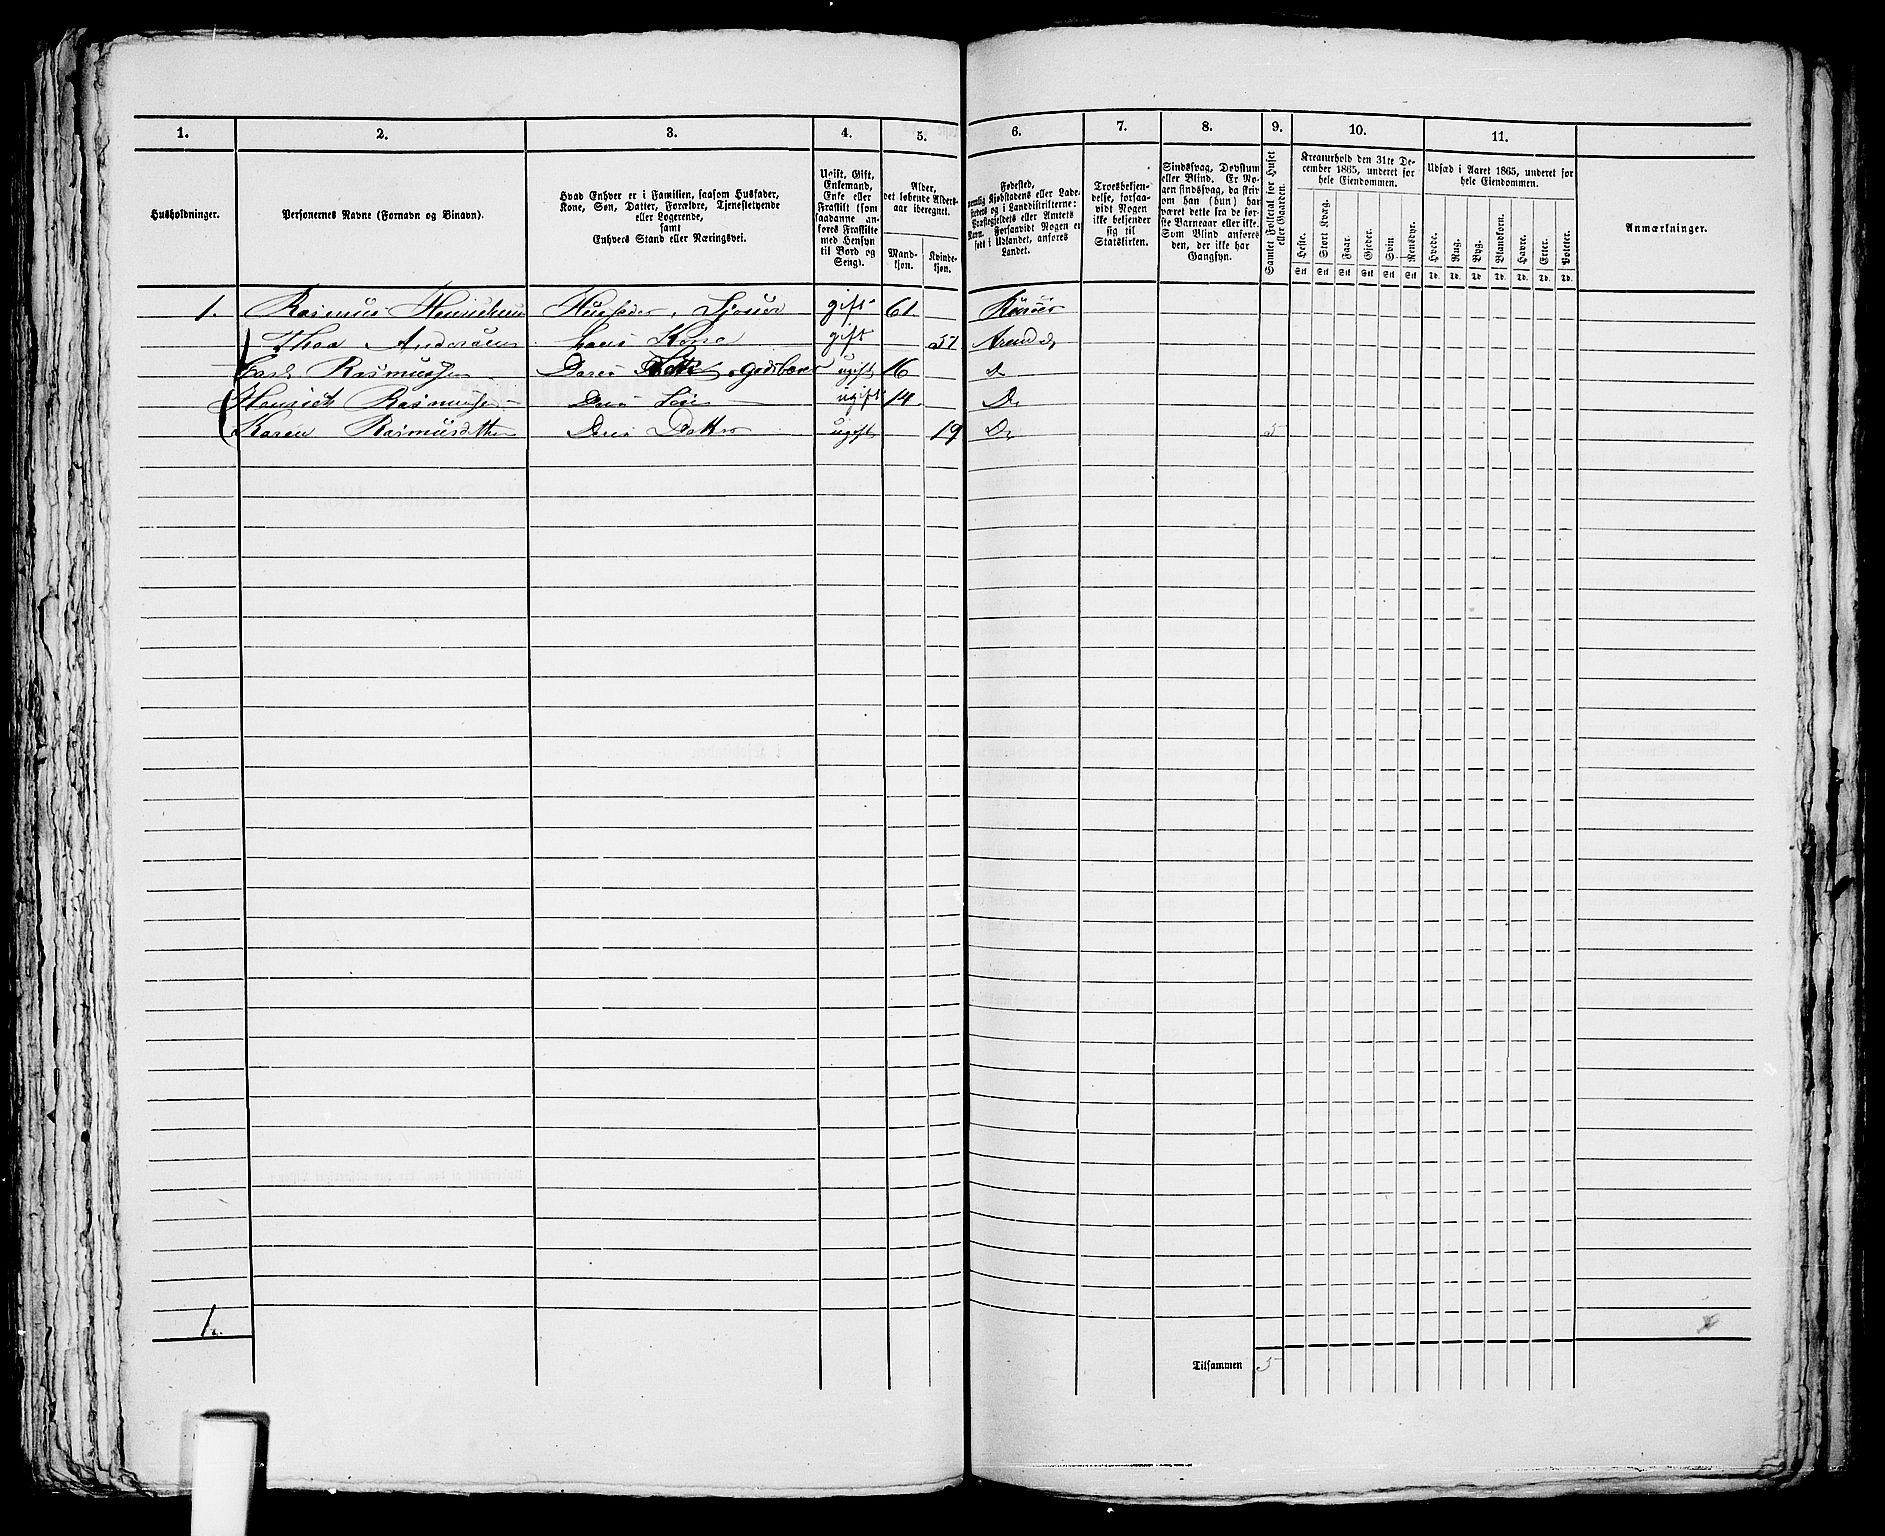 1. 2. 3. 4. 5. 6. 7. 8. 9. 10. 11.
Husholdninger.
Personernes Navne (Fornavn og Binavn).
Hvad Enhver er i Familien, saasom Husfader,
Kone, Søn, Datter, Forældre, Tjenestetyende
eller Logerende,
samt
Enhvers Stand eller Næringsvei.
Ugift, Gift,
Enkemand,
Enke eller
Fraskilt (som
saadanne an-
føres Fraskilte
med Hensyn
til Bord og
Seng).
Alder,
det løbende Alders-
aar iberegnet.
Mand-
kjøn.
Kvinde-
kjøn.
Fødested,
nemlig Kjøbstadens eller Lade-
stedets og i Landdistrikterne:
Præstegjeldets eller Amtets
Navn. Forsaavidt Nogen er
født i Udlandet, anføres
Landet.
Troesbekjen-
delse, forsaa-
vidt Nogen
ikke bekjender
sig til
Statskirken.
Sindssvag, Døvstum
eller Blind. Er No-
gen sindssvag, da skriv
om han (hun) har
været dette fra de før-
ste Barneaar eller ikke.
Som Blind anføres
den, der ikke har
Gangsyn.
Samlet Folketal for Huset
eller Gaarden.
Kreaturhold den 31te De-
cember 1865, underet for
hele Eiendommen.
Heste. Stort Kvæg. Faar. Gjeder. Svin. Rensdyr.
Stk Stk Stk Stk Stk Stk
Udsæd i Aaret 1865, underet for
hele Eiendommen.
Hvede. Rug. Byg. Blandkorn. Havre. Erter. Poteter.
Td. Td. Td. Td. Td. Td. Td.
Anmærkninger.
1. Rasmus Henrichsen Husfader, gift 61
Andersen hans Kone gift 57 Arendal
Carl Rasmussen Deres ugift 16
Henrich Rasmussen Deres Søn ugift 14 Do
Karen Rasmusdtter Deres Datter ugift 19 Do 5
1.
Tilsammen 5